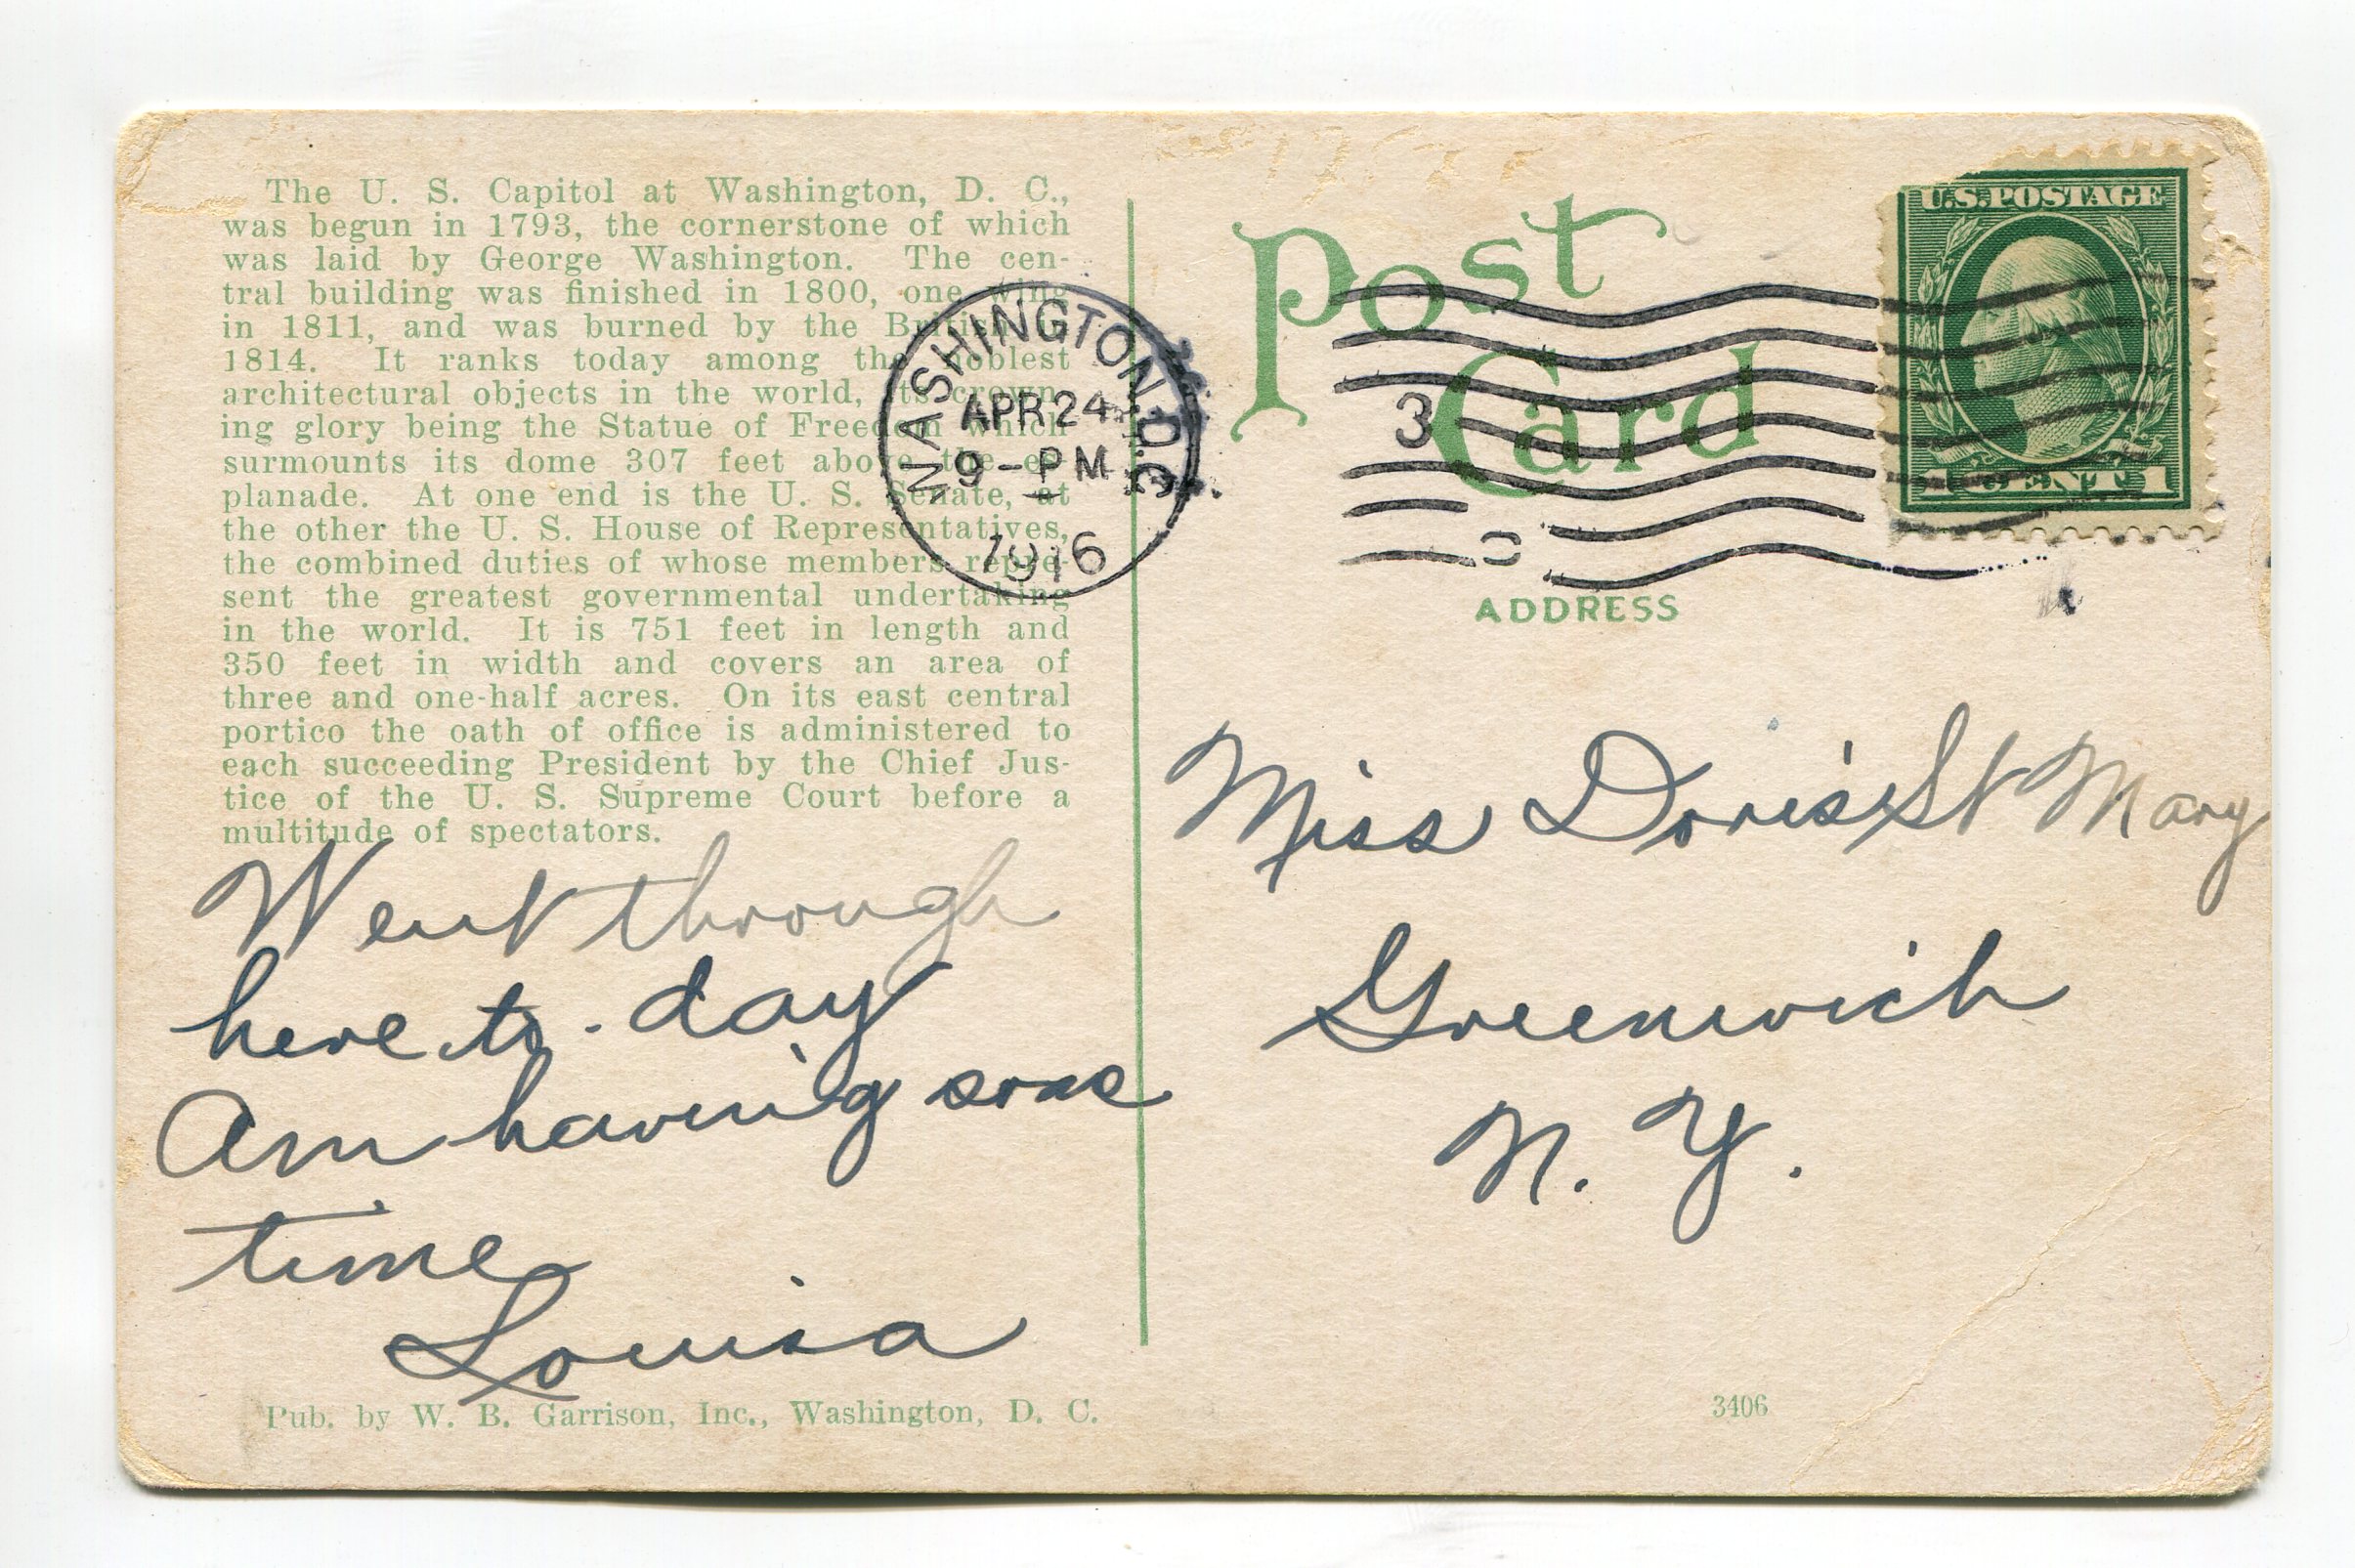 The U. S. Capitol at Washington, D. C.,
was begun in 1793, the cornerstone of which
was laid by George Washington. The cen-
tral building was finished in 1800, one wing
in 1811, and was burned by the British in
1814. It ranks today among the noblest
architectural objects in the world, its crown-
ing glory being the Statue of Freedom which
surmounts its dome 307 feet above the es-
planade. At one end is the U. S. Senate, at
the other the U. S. House of Representatives,
the combined duties of whose members repre-
sent the greatest governmental undertaking
in the world. It is 751 feet in length and
350 feet in width and covers an area of
three and one-half acres. On its east central
portico the oath of office is administered to
each succeeding President by the Chief Jus-
tice of the U. S. Supreme Court before a
multitude of spectators.
Went through
here to-day
Am having some
time
Louisa
Pub. by W. B. Garrison, Inc., Washington, D. C.
WASHINGTON, D.C.
APR 24
9-PM
1916
Post
Card
3
ADDRESS
U.S. POSTAGE
1 CENT 1
Miss Doris St Mary
Greenwich
N. Y.
3406